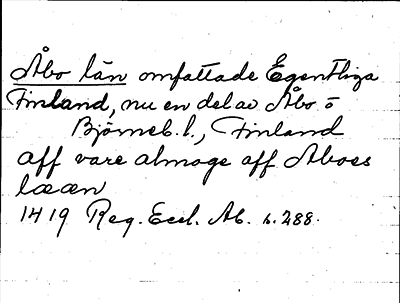 Åbo län omfattade Egentliga
Finland, nu en del av Åbo o
Björneb. l., Finland
aff vare almoge aff Aboes
lææn
1419 Reg. Eccl. Ab. s. 288.